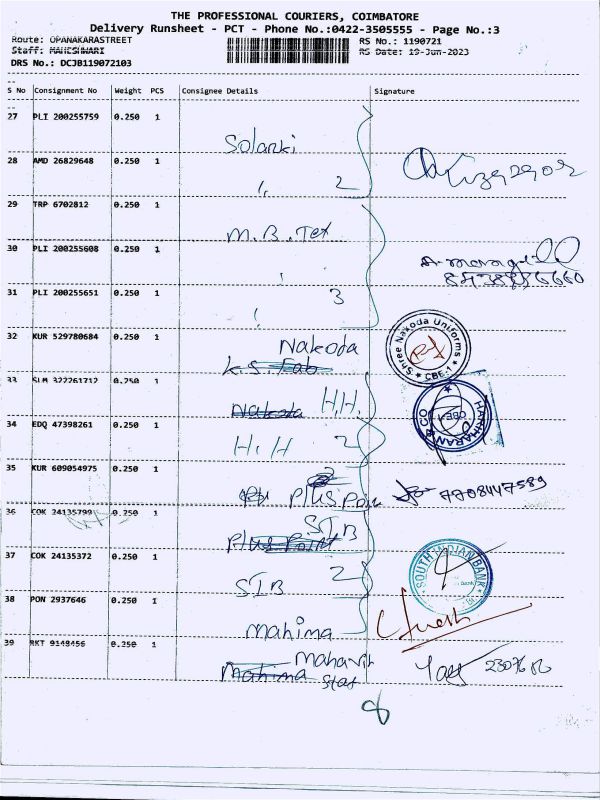 THE PROFESSIONAL COURIERS, COIMBATORE
Delivery Runsheet - PCT - Phone No.:0422-3505555 - Page No.:3
Route: OPANAKARASTREET RS No.: 1190721
Staff: MAHESHWARI RS Date: 19-Jun-2023
DRS No.: DCJB119072103
S No Consignment No Weight PCS Consignee Details Signature
27 PLI 200255759 0.250 1
Solanki
28 AMD 26829648 0.250 1
2
29 TRP 6702812 0.250 1
M.B.Tex
30 PLI 200255608 0.250 1
31 PLI 200255651 0.250 1
3
32 KUR 529780684 0.250 1
Nakoda
K.S. Fab
Shree Nakoda Uniforms
CBE-1
33 SLM 322261712 0.250 1
Nakoda H.H.
HARIHARAN & CO
CBE-1
34 EDQ 47398261 0.250 1
H.H 2
35 KUR 609054975 0.250 1
Plus Poi
7708447589
36 COK 24135799 0.250 1
SIB
Plus Point
37 COK 24135372 0.250 1
SIB 2
SOUTH INDIAN BANK
38 PON 2937646 0.250 1
Mahima
39 RKT 9148456 0.250 1
Mahavir
Mahima Star
8